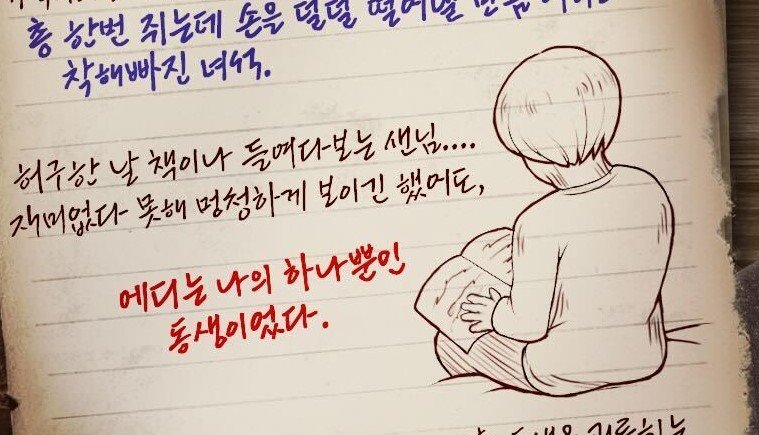 총 한번 쥐는데 손을 덜덜 떨어낼 만큼
착해빠진 녀석.
허구한 날 책이나 들여다보는 샌님....
재미없다 못해 멍청하게 보이긴 했어도,
에디는 나의 하나뿐인
동생이었다.